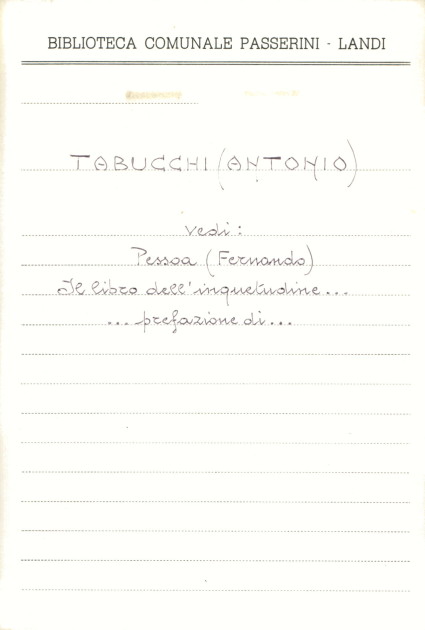 BIBLIOTECA COMUNALE PASSERINI - LANDI
TABUCCHI (ANTONIO)
vedi:
Pessoa (Fernando)
Il libro dell'inquetudine...
... prefazione di...